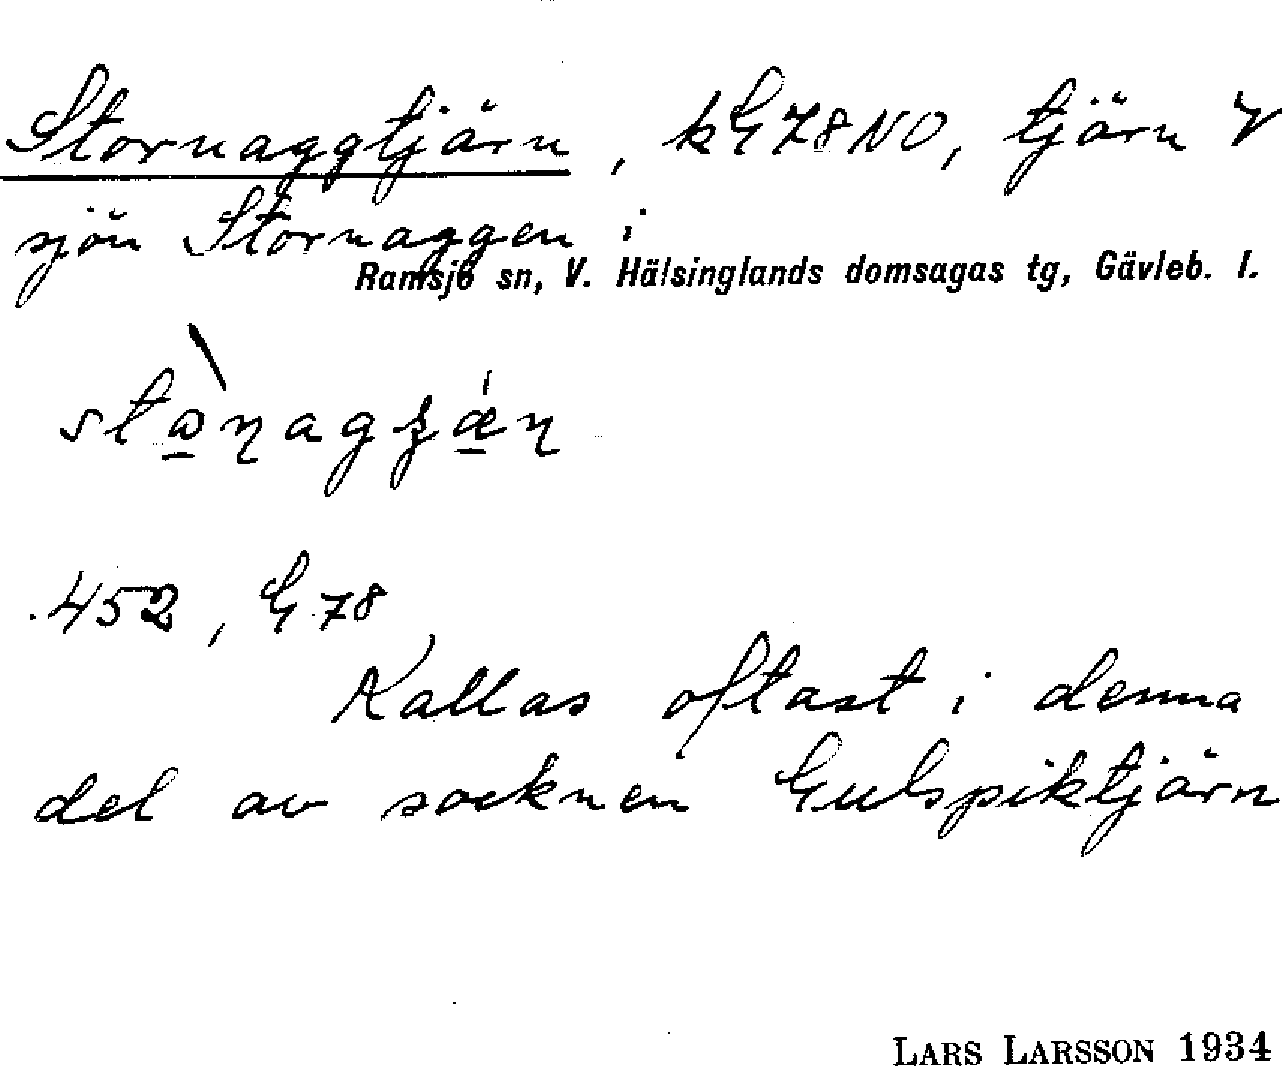 Stornaggtjärn, kG78NO, tjärn V
sjön Stornaggen i
Ramsjö sn, V. Hälsinglands domsagas tg, Gävleb. l.
452, G 78
Kallas oftast i denna
del av socknen Gulspiktjärn
LARS LARSSON 1934